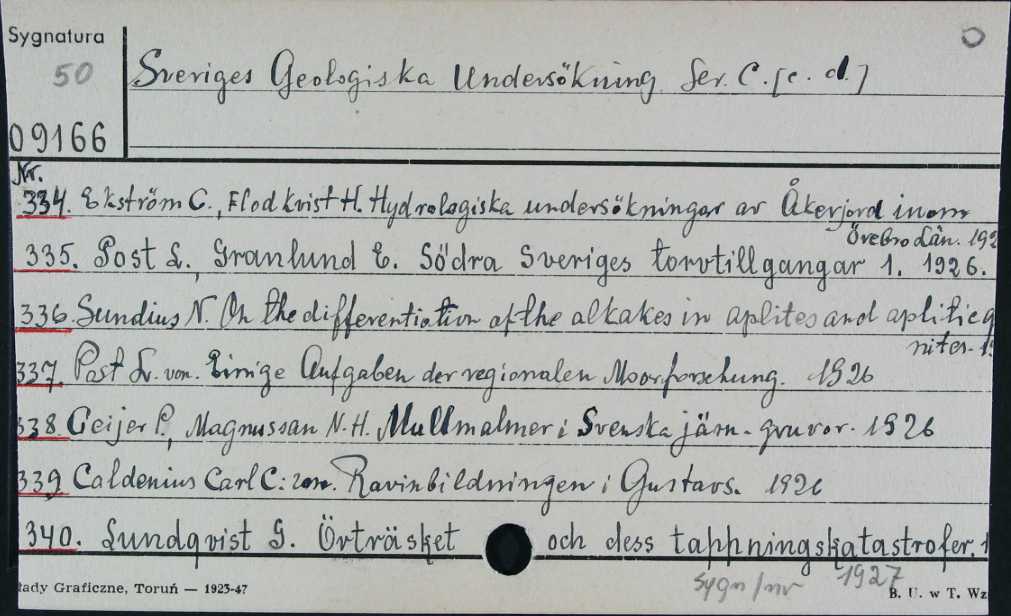 Sygnatura
50
09166
Sveriges Geologiska Undersökning Ser. C. [c. d.]
Nr.
334. Ekström G., Flodkvist H. Hydrologiska undersökningar av Åkerjord inom
Örebro Län. 192
335. Post L., Granlund E. Södra Sveriges torvtillgangar 1. 1926.
336. Sundius N. On the differentiation of the alkakes in aplites and aplitic g
nites. 1
337. Post L. von. Einige Aufgaben der regionalen Moorforschung. 1926
338. Geijer P., Magnusson N.H. Mullmalmer i Svenska järn-gruvor. 1926
339 Caldenius Carl C:zon. Ravinbildningen i Gustavs. 1926
340. Lundqvist G. Örträsket och dess tappningskatastrofer. 1
1927
sygn/nr
łady Graficzne, Toruń — 1923-47
B. U. w T. Wz